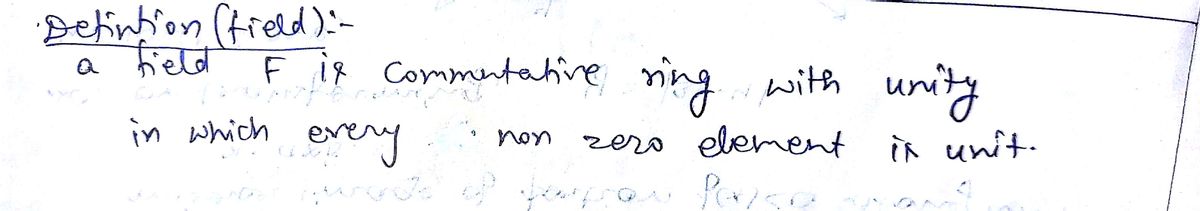 Defintion (field):-
a field F is Commutative ring with unity
in which every non zero element is unit.